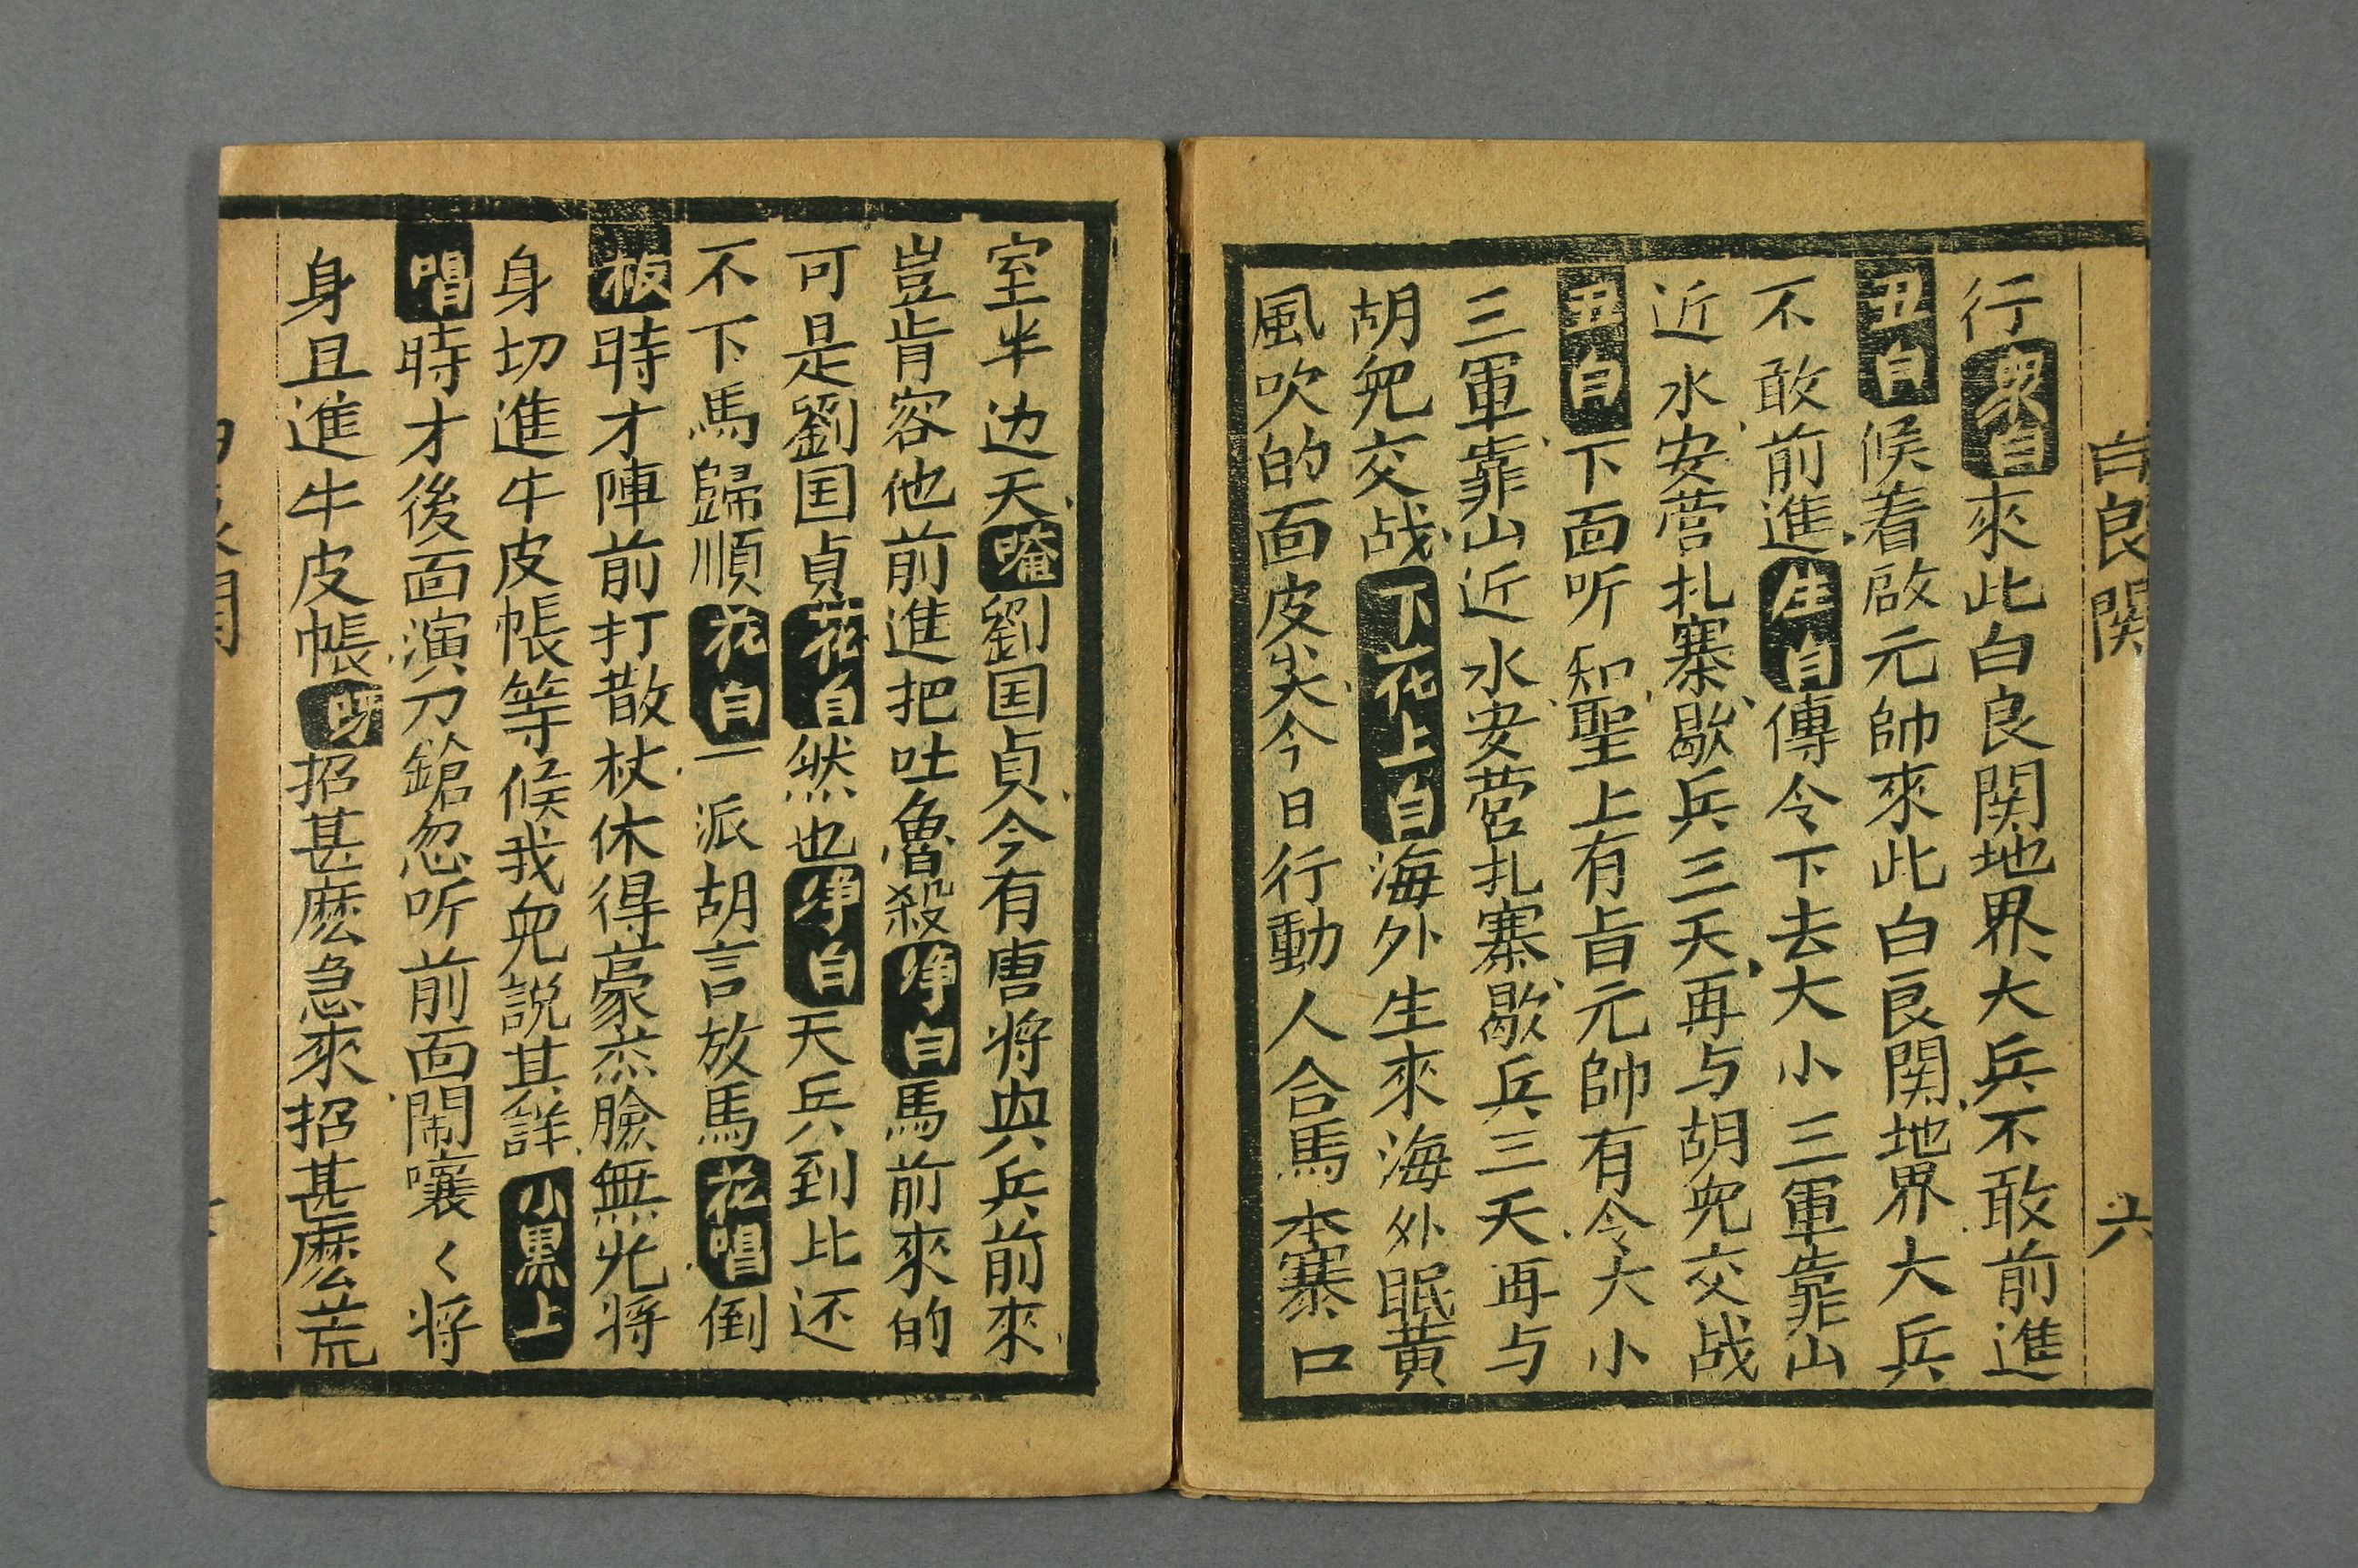 白良関 六
行眾白來此白良関地界大兵不敢前進
丑白候着啟元帥來此白良関地界大兵
不敢前進生白傳令下去大小三軍靠山
近水安营扎寨歇兵三天再与胡児交战
丑白下面听知聖上有旨元帥有令大小
三軍靠山近水安营扎寨歇兵三天再与
胡児交战下花上白海外生來海外眠黄
風吹的面皮尖今日行動人合馬本寨口
室半边天唵劉国貞今有唐将與兵前來
豈肯容他前進把吐魯殺净白馬前來的
可是劉国貞花白然也净白天兵到此还
不下馬歸順花白一派胡言放馬花唱倒
板時才陣前打散杖休得豪杰臉無光将
身切進牛皮帳等候我児説其詳小黒上
唱時才後面演刀鎗忽听前面鬧嚷〱将
身且進牛皮帳呀招甚麽急來招甚麽荒